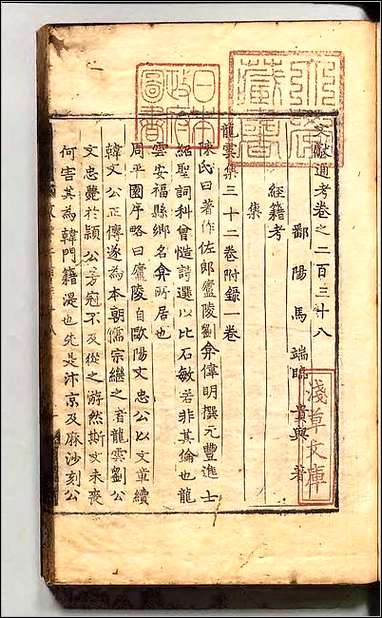 文獻通考卷之二百三十八
鄱陽馬端臨貴與著
經籍考
集
龍雲集三十二卷附錄一卷
陳氏曰著作佐郎廬陵劉弇偉明撰元豐進士
紹聖詞科曾慥詩選以比石敏若非其倫也龍
雲安福縣鄉名弇所居也
周平園序略曰廬陵自歐陽文忠公以文章續
韓文公正傳遂為本朝儒宗繼之者龍雲劉公
文忠覺於穎公方冠不及從之游然斯文未喪
何害其為韓門籍湜也先是汴京及麻沙刻公
日本
政府
圖書
淺草文庫
藏書